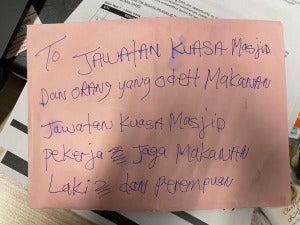 To JAWATAN KUASA Masjid
Dan ORANg yang odett MaKaNaN
Jawatan KuaSa MaSjiD
pekerja2 Jaga MaKaNaN
Laki2 dan perempuan